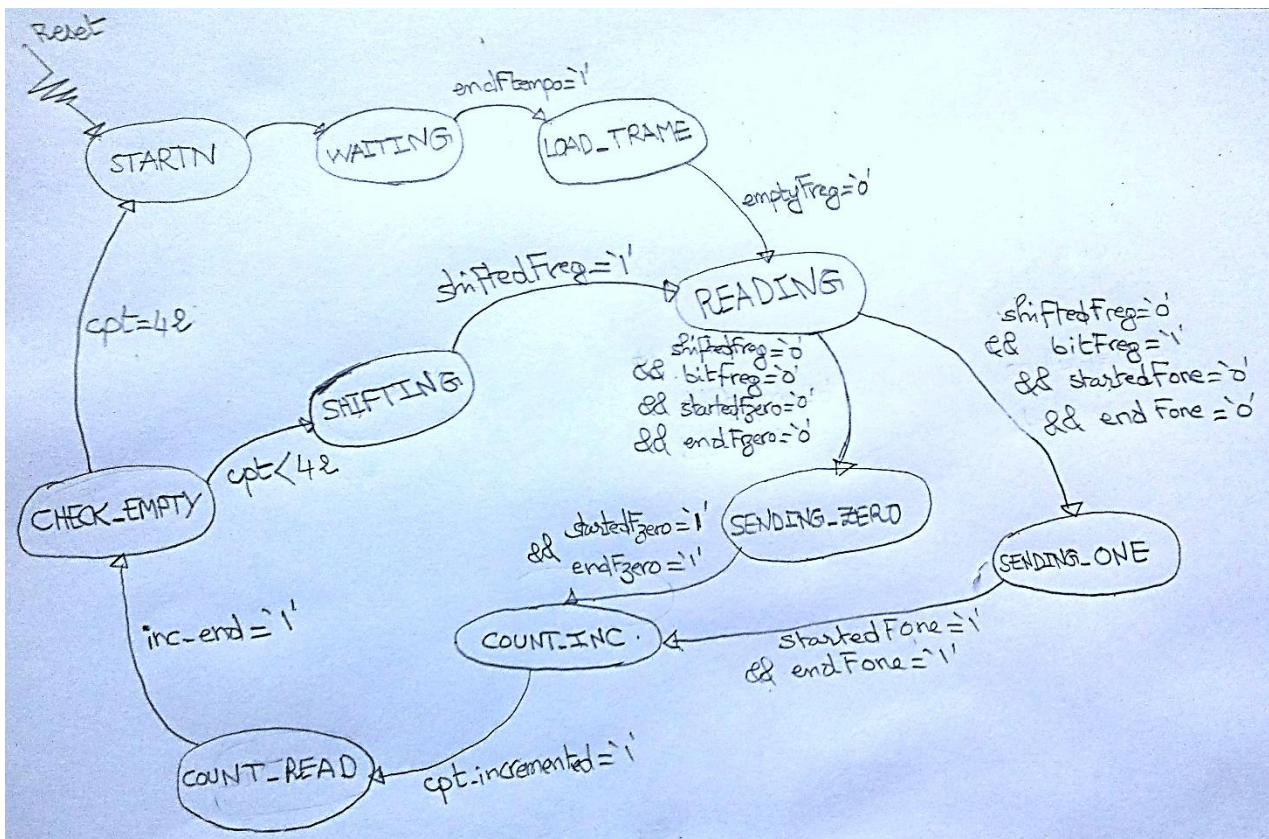 Reset
STARTN
WAITING
endFtempo='1'
LOAD_TRAME
emptyFreg='0'
READING
shiftedFreg='1'
SHIFTING
cpt=42
cpt<42
CHECK_EMPTY
shiftedFreg='0'
&& bitFreg='0'
&& startedFzero='0'
&& endFzero='0'
shiftedFreg='0'
&& bitFreg='1'
&& startedFone='0'
&& endFone='0'
SENDING_ZERO
SENDING_ONE
startedFzero='1'
&& endFzero='1'
startedFone='1'
&& endFone='1'
COUNT_INC.
inc_end='1'
cpt_incremented='1'
COUNT_READ